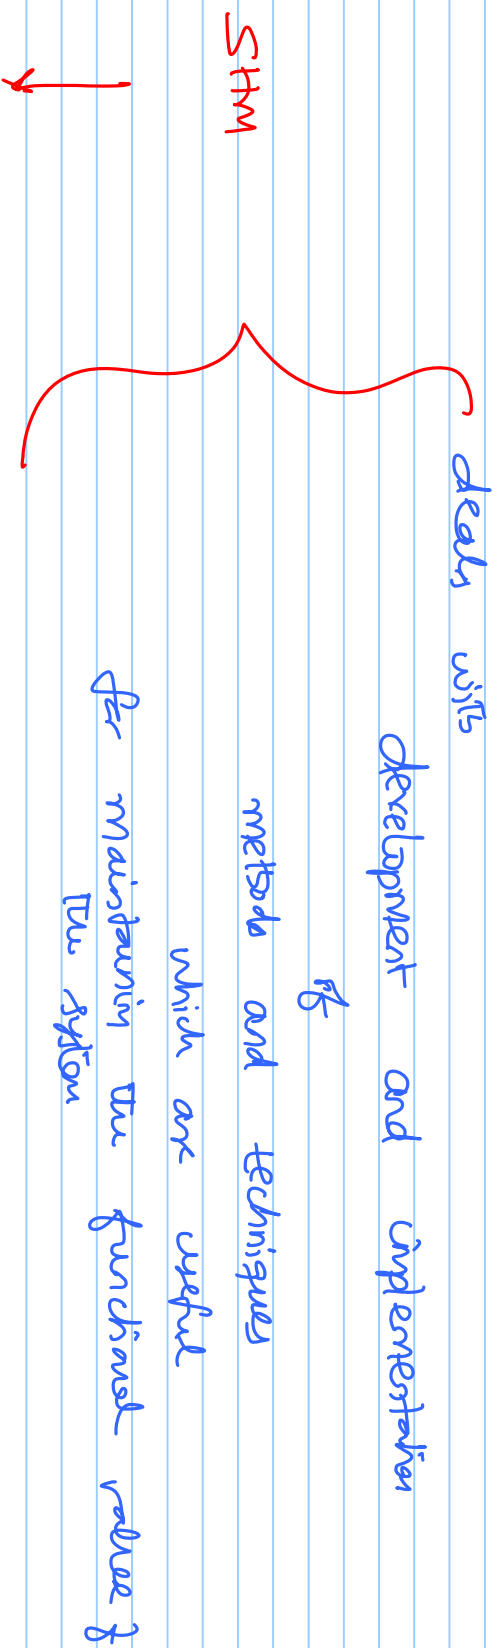 SHM
deals with
development and implementation
of
methods and techniques
which are useful
for maintainin the functional values of
the system